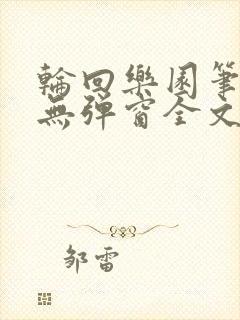 輪回樂園筆
無彈窗全文
邹雷